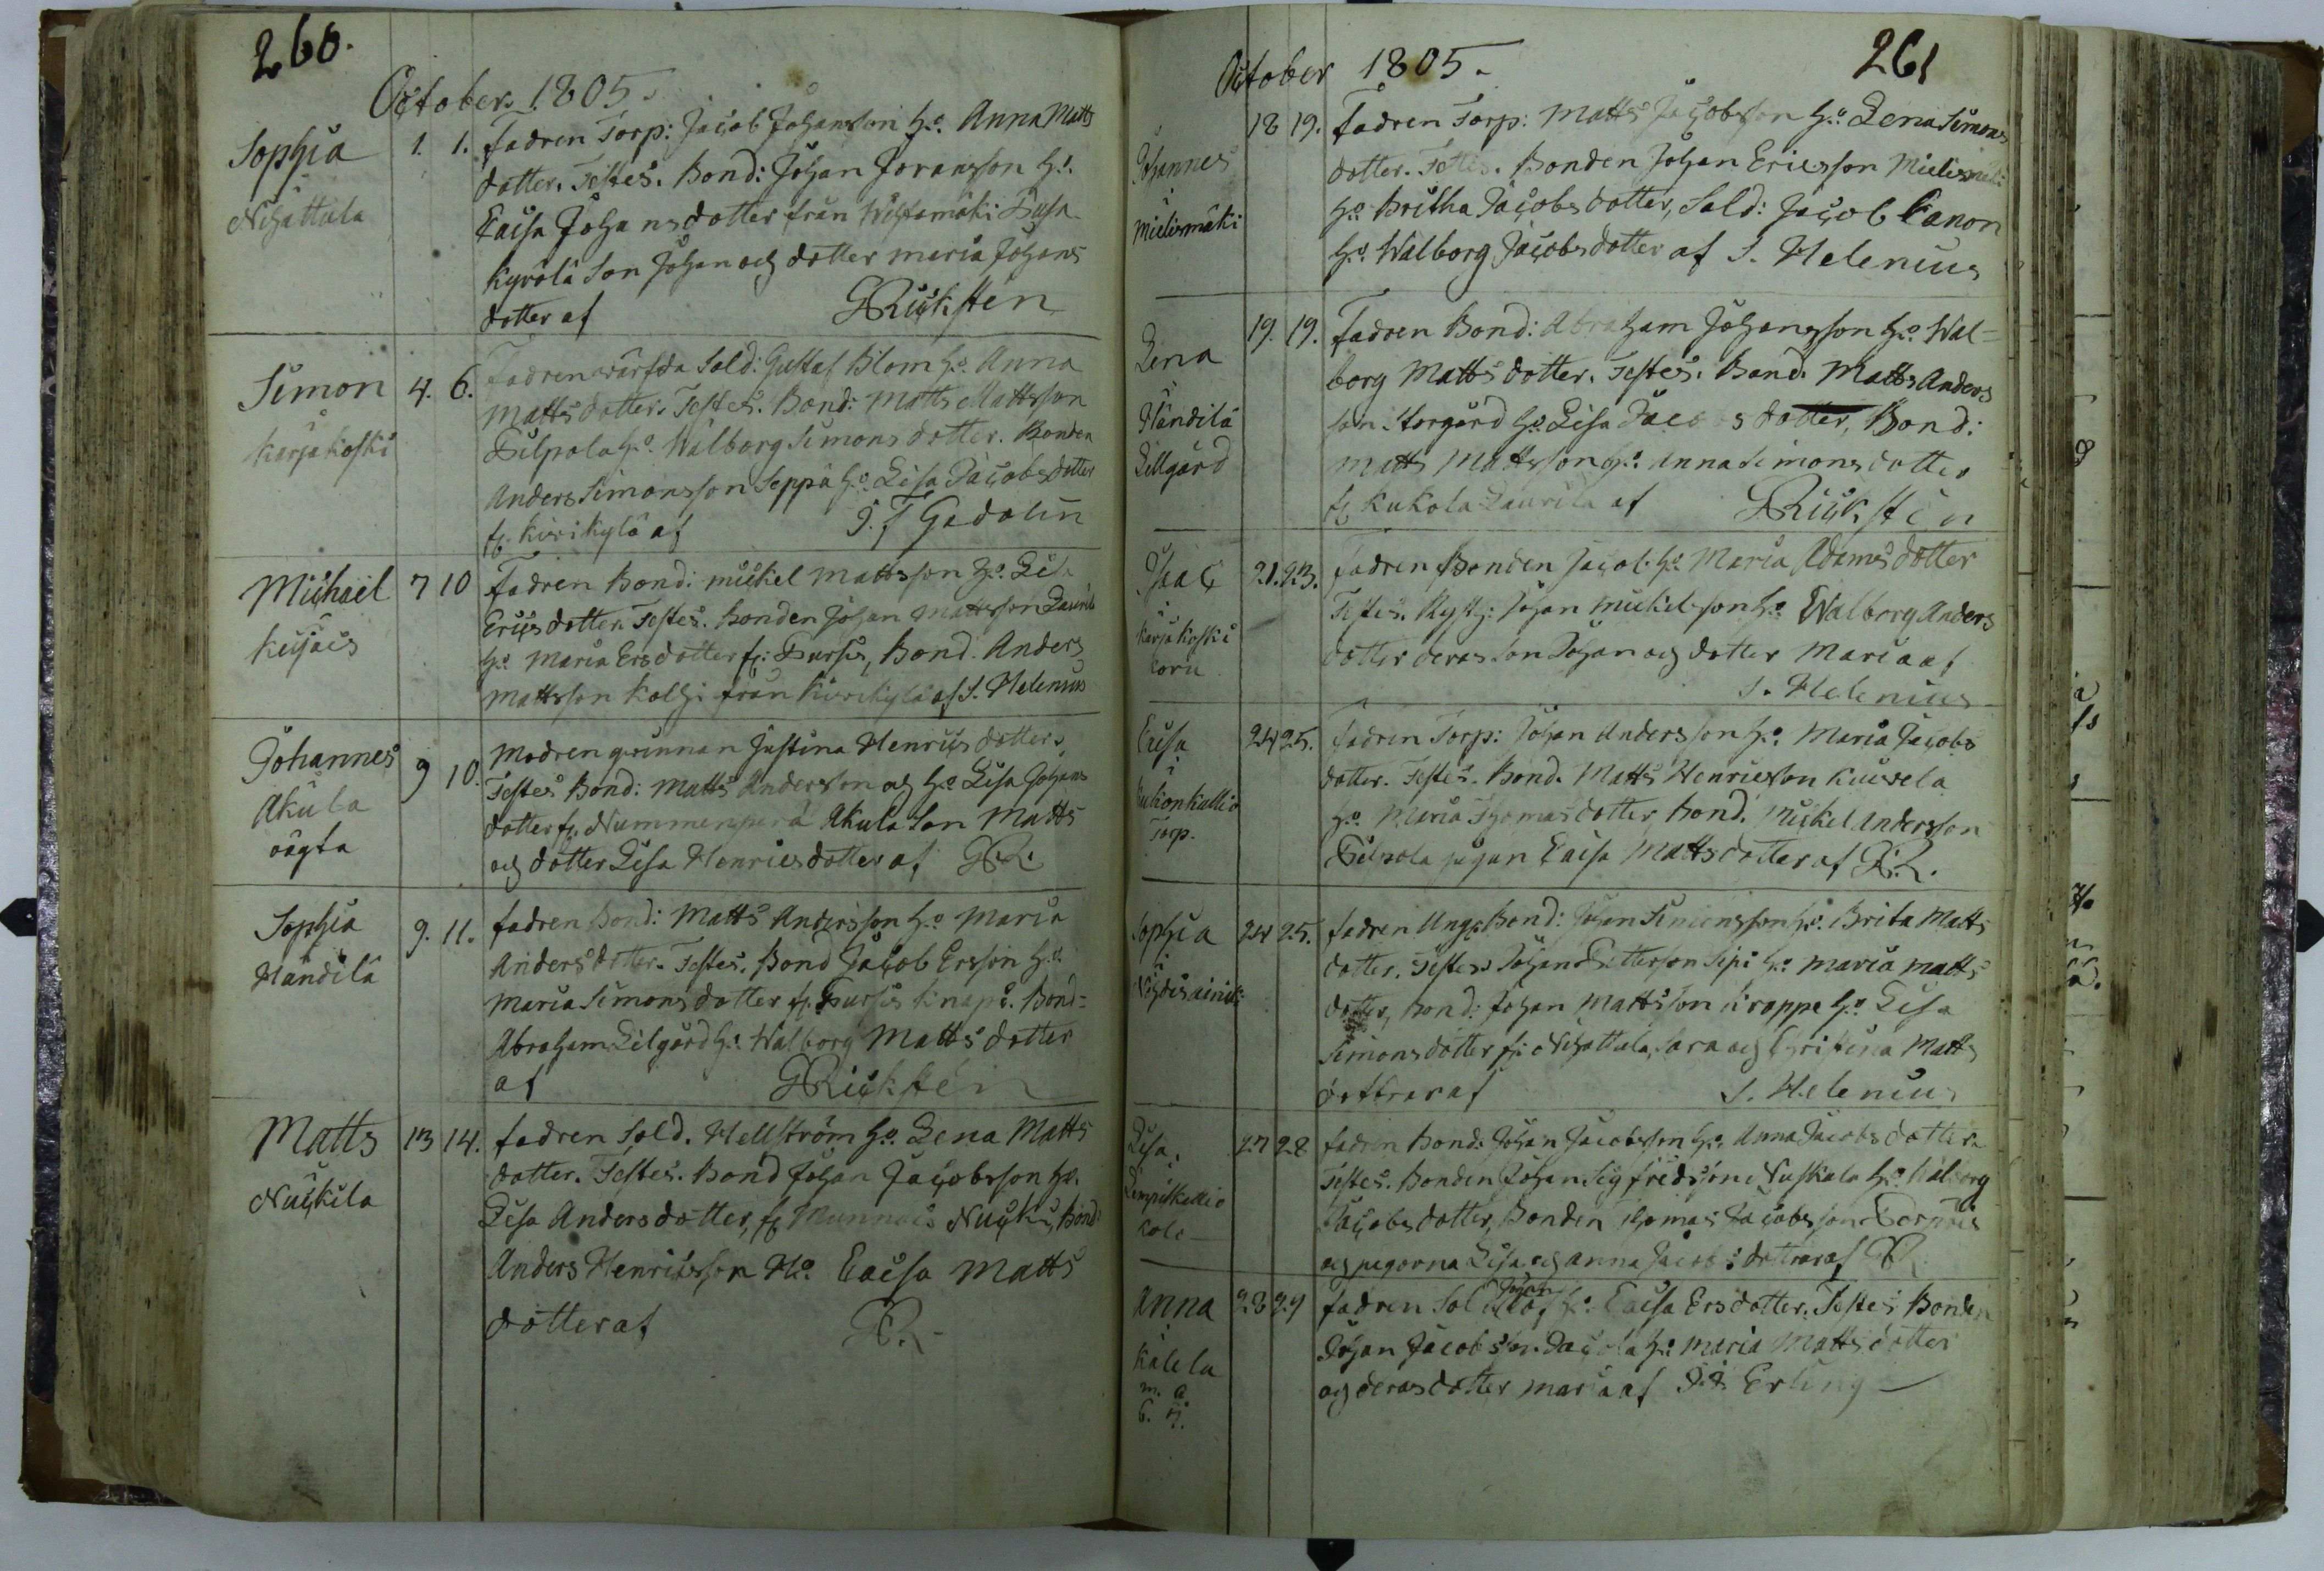 260.
October 1805.
Sophia
i
Nihattula
1. 1. Fadren Torp: Jacob Johansson h:o Anna Matts
dotter. Testes. Bond: Johan Joransson h:o
Caisa Johansdotter från
Kyrölä Son Johan och dotter Maria Johans
dotter af GRickstén
Simon
i
Karjakoski
4. 6. Fadren Sold: Gustaf Blom h:o Anna
Matts dotter. Testes. Bond: Matts Mattsson
Pilpola h:o Walborg Simons dotter. Bonden
Anders Simonsson Seppä h:o Lisa Jacobsdotter
fr. Kirikylä af J. F Gadolin
Michael
i
Kujais
7 10 Fadren Bond: Mickel Mattsson h:o Lisa
Ericsdotter Testes. Bonden Johan Mattsson Laurila
h:o Maria Ersdotter fr: Pursis, Bond. Anders
Mattsson Kolhi från Kirikylä af S. Helenius
Johannes
Akula
oägta
9 10. Modren qvinnan Justina Henrics dotter,
Testes Bond: Matts Andersson och h:o Lisa Johans
dotter fr. Nummenperä Akula Son Matts
och dotter Lisa Henricsdotter af G.R.
Sophia
i
Händilä
9. 11. Fadren Bond: Matts Andersson h:o Maria
Andersdotter. Testes. Bond Jacob Ersson h:o
Maria Simonsdotter fr. Pursis Knapi. Bond=
Abraham Lilgård h:o Walborg Matts dotter
af GRickstén
Matts
i
Nuckila
13 14. Fadren Sold. Hellström h:o Lena Matts
dotter. Testes. Bond Johan Jacobsson h:o
Lisa Andersdotter, fr Munnais Nucki, Bond:
Anders Henricsson H:o Caisa Matts
dotter af G.R.
October 1805.
261
Johannes
i
Mielismäki
18 19. Fadren Torp: Matts Jacobsson h:o Lena Simons
dotter. Testes. Bonden Johan Ericsson
h:o Britha Jacobsdotter, Sold: Jacob Canon
h:o Walborg Jacobsdotter af S. Helenius
Lena
i
Händilä
Lillgård
19. 19. Fadren Bond: Abraham Johansson h:o Wal=
borg Matts dotter. Testes. Bond. Matts Anders
son Storgård h:o Lisa Jacobsdotter, Bond:
Matts Mattsson h:o Anna Simonsdotter
fr Kukola Laurila af GRickstén
Isaac
i
Karjakoski
Coru
21. 23. Fadren Bonden Jacob h:o Maria Adamsdotter
Testes. Johan Mickelsson h:o Walborg Anders
dotter deras Son Johan och dotter Maria af
S. Helenius
Caisa
i
Torp.
24 25. Fadren Torp: Johan Andersson h:o Maria Jacobs
dotter. Testes. Bond. Matts Henricsson Kuusela
h:o Maria Thomasdotter Bond. Mickel Andersson
Pilpola pigan Caisa Mattsdotter af G.R.
Sophia
i
24 25. Fadren Unga Bond: Johan Simonsson h:o Brita Matts
dotter. Testes Johan Pettersson Sipi h:o Maria Matts
dotter, Bond: Johan Mattsson Krappe h:o Lisa
Simonsdotter fr: Nihattula, Sara och Christina Matts
döttrar af S. Helenius
Lisa
i
27 28 Fadren Bond: Johan Jacobsson h:o Anna Jacobsdotter
Testes. Bonden Johan Sigfredsson Nuskala h:o Walborg
Jacobsdotter, Bonden Thomas Jacobsson
och pigorna Lisa och Anna Jacobs döttrar af GR
Anna
i
Kalela
m. a
6. 7.
28 29 Fadren Sold Johan h:o Caisa Ersdotter. Testes Bonden
Johan Jacobsson h:o Maria Mattsdotter
och deras dotter Maria af Erling